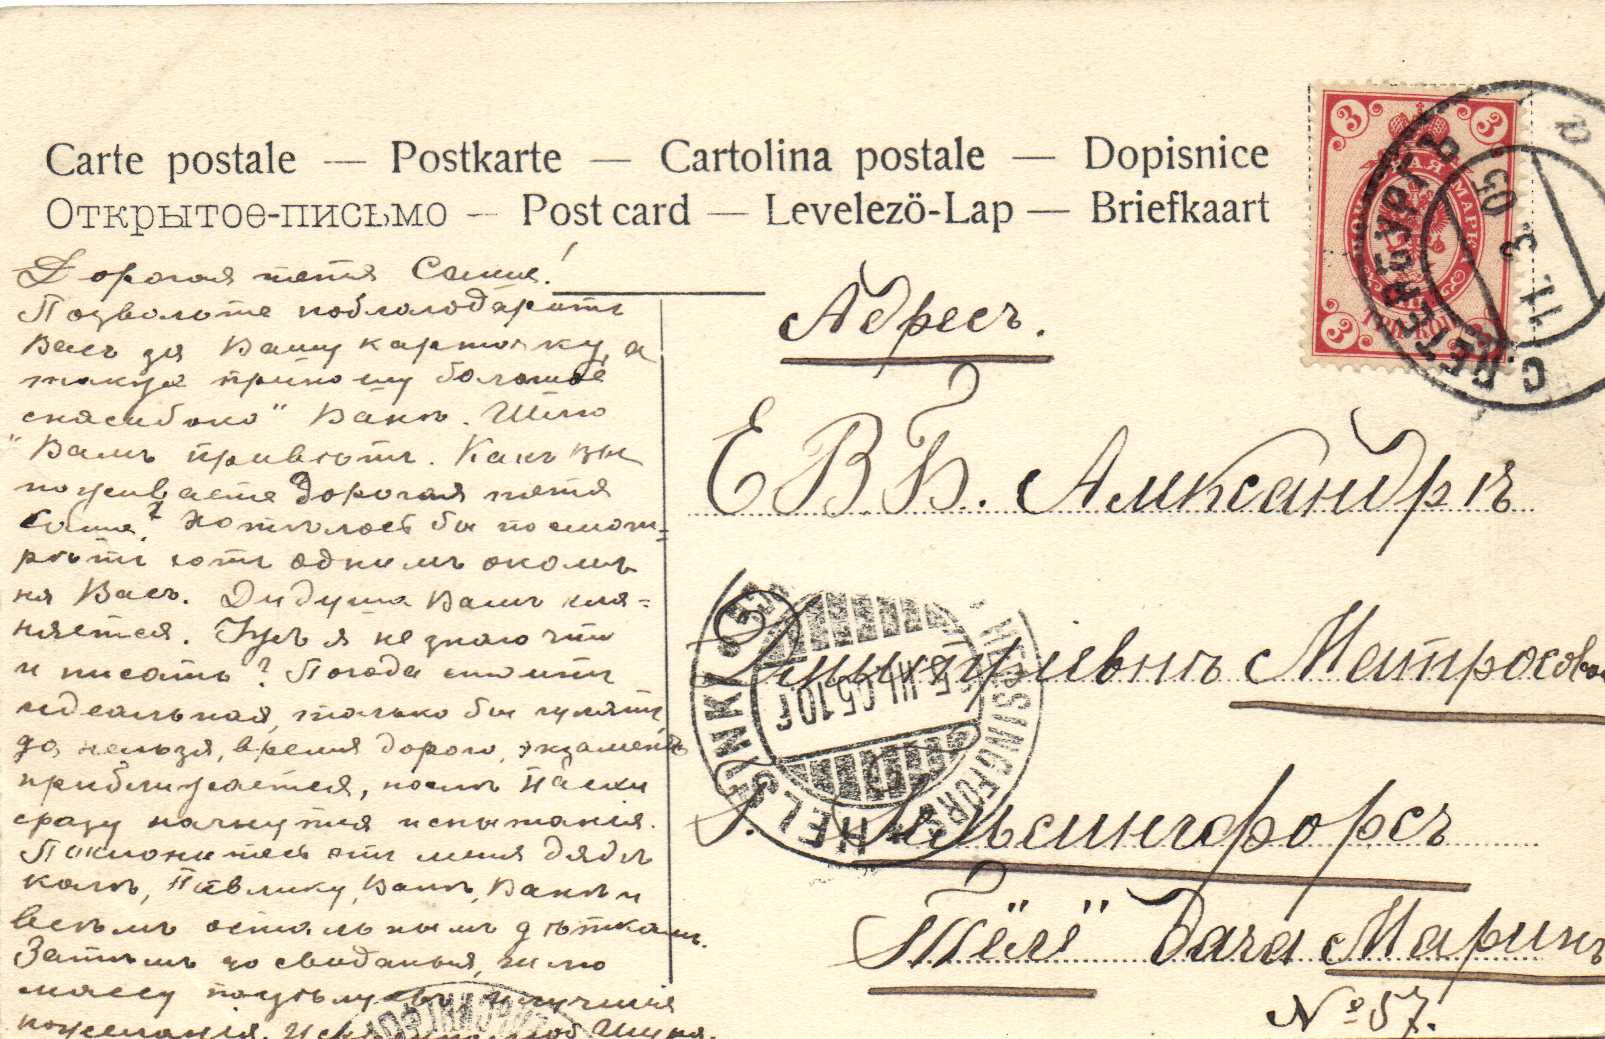 Carte postale — Postkarte — Cartolina postale — Dopisnice
Открытое-письмо — Post card — Levelező-Lap — Briefkaart
Дорогая тетя Саше!
Позвольте поблагодарить
Васъ за Вашу карточку, а
также приношу большое
спасибо
Вамъ приветъ. Какъ вы
поживаете дорогая тетя
Саше? Хотѣлось бы посмот-
рѣть хоть однимъ окомъ
на Васъ. Дидуша Вамъ кла=
няется. я не знаю что
и писать? Погода стоитъ
идеальная, только бы гулять
да нельзя, время дорого, экзамены
приближается, послѣ Пасхи
сразу начнутся испытанія.
Поклонитесь отъ меня дядѣ
Колѣ, Павлику, Ванѣ и
всѣмъ остальнымъ дѣткамъ.
Затѣмъ до свиданья, шлю
массу поцѣлуевъ и лучшія
пожеланія. Шура.
Адресъ.
Е В Б. Александрѣ
Дмитріевнѣ Матросовой
г. Гельсингфорсъ
Тёлё Дача Маринъ
№ 57.
3
3
3
3
С.ПЕТЕРБУРГЪ
11. 3. 05
HELSINKI
HELSINGFORS